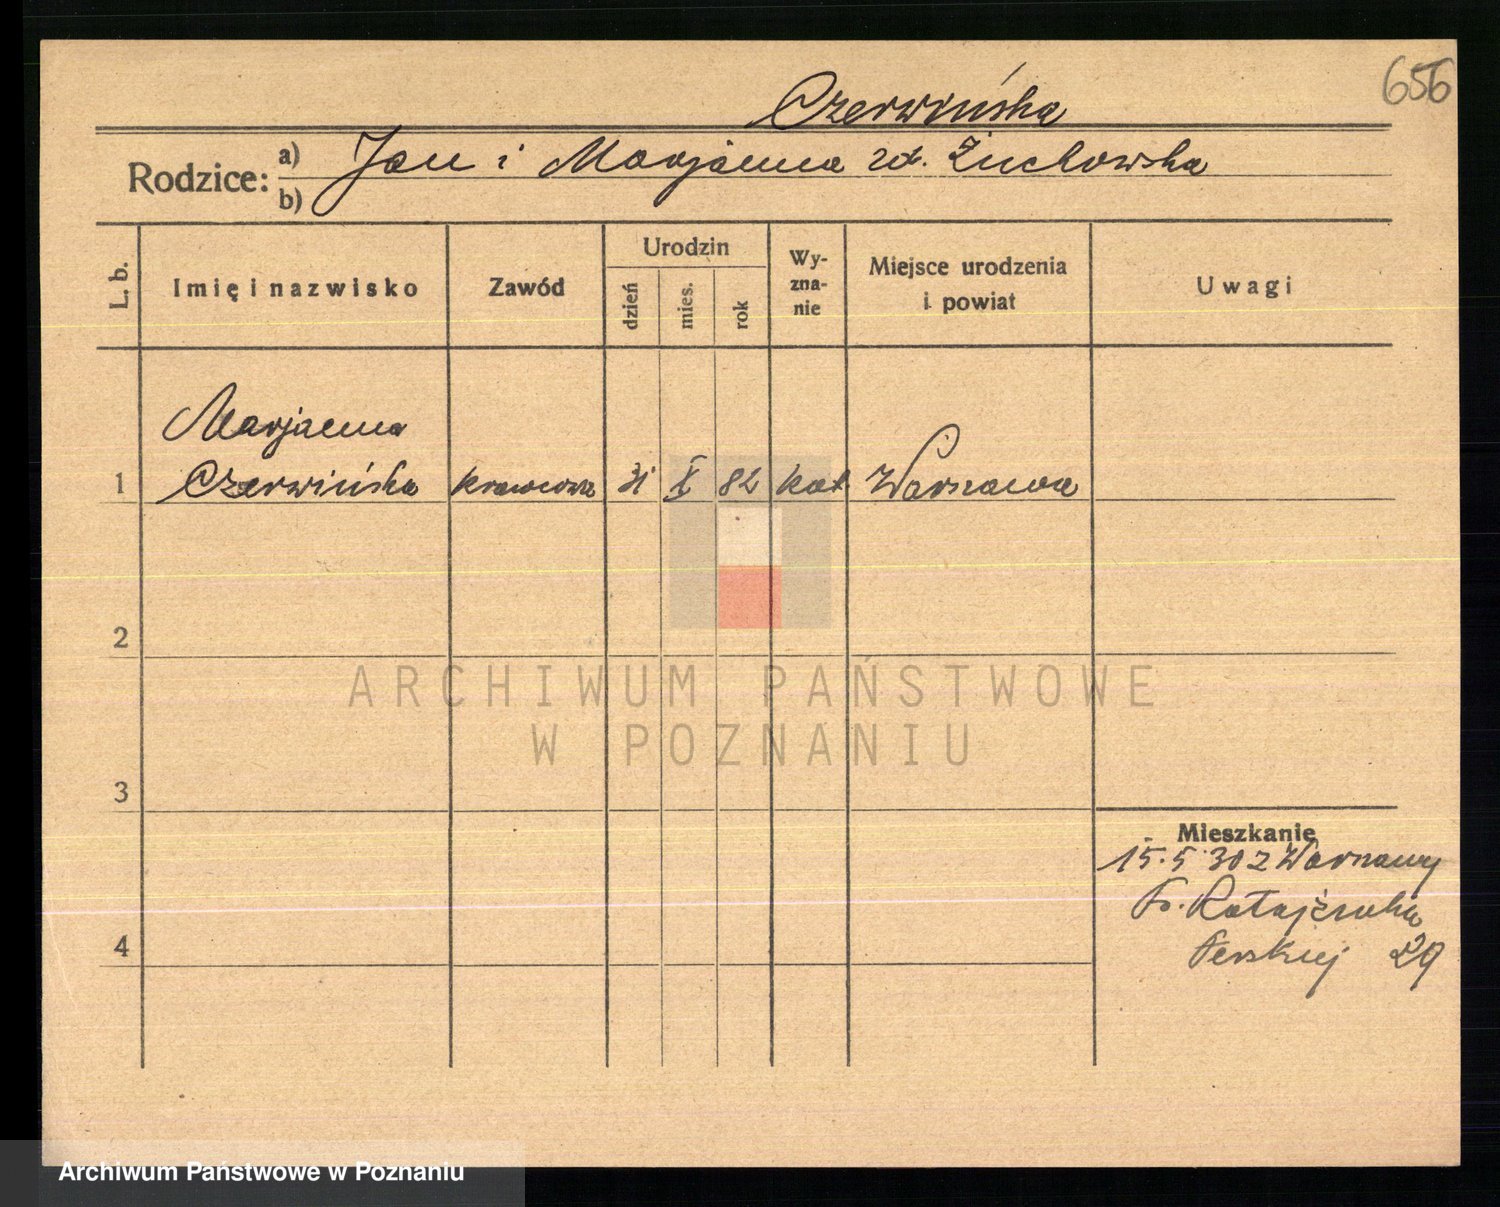 656
Czerwińska
Rodzice: a) Jan i Marjanna zd. Żuchowska
b)
L. b. Imię i nazwisko Zawód Urodzin dzień mies. rok Wy-zna-nie Miejsce urodzenia i powiat Uwagi
Marjanna
1 Czerwińska krawcowa 31 X 82 kat Warszawa
2
ARCHIWUM PAŃSTWOWE
W POZNANIU
3
Mieszkanie
15.5.30 z Warszawy
Fr. Ratajczaka
4
29
Archiwum Państwowe w Poznaniu